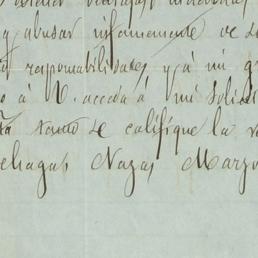 y abusar infamemente de s
responsabilidades, y á mi g
o á V. acceda á mi solici
tanto se califique la v
chagas Nazas Marzo